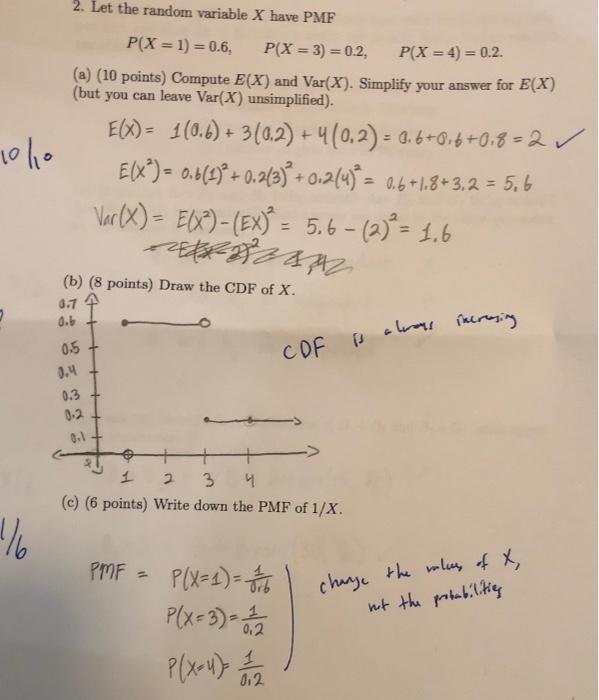 2. Let the random variable X have PMF
P(X = 1) = 0.6, P(X = 3) = 0.2, P(X = 4) = 0.2.
(a) (10 points) Compute E(X) and Var(X). Simplify your answer for E(X)
(but you can leave Var(X) unsimplified).
E(X) = 1(0.6) + 3(0.2) + 4(0.2) = 0.6+0.6+0.8 = 2 ✓
10/10
E(X²) = 0.6(1)² + 0.2(3)² + 0.2(4)² = 0.6+1.8+3.2 = 5.6
Var(X) = E(X²) - (EX)² = 5.6 - (2)² = 1.6
(b) (8 points) Draw the CDF of X.
0.7
0.6
0.5
0.4
0.3
0.2
0.1
1 2 3 4
CDF is always increasing
(c) (6 points) Write down the PMF of 1/X.
1/6
PMF = P(X=1) = 1/0.6
P(X=3) = 1/0.2
P(X=4) = 1/0.2
change the values of X,
not the probabilities